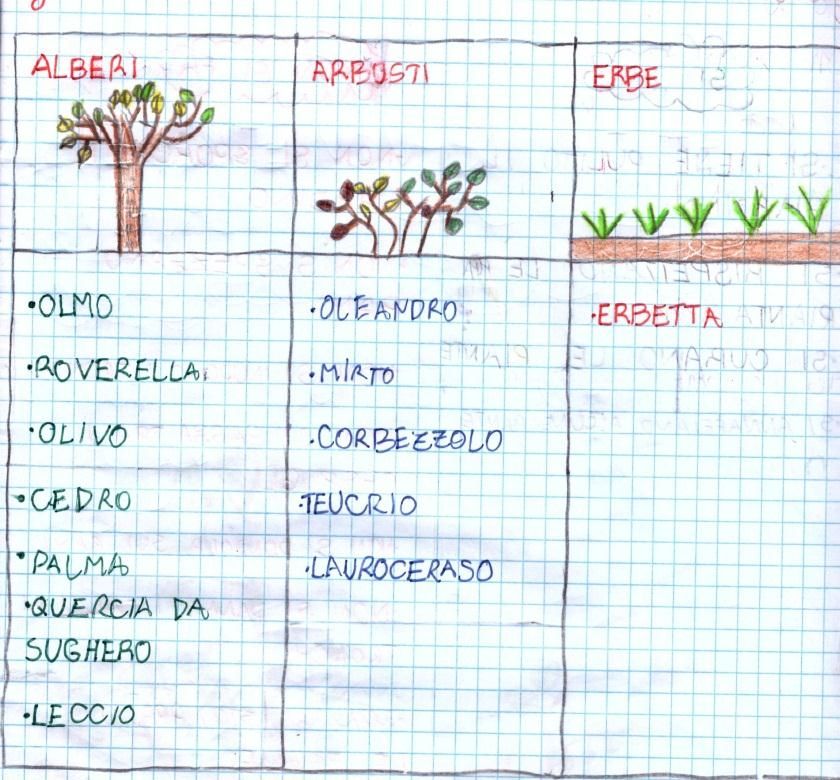 ALBERI
•OLMO
•ROVERELLA.
•OLIVO
•CEDRO
•PALMA
•QUERCIA DA
SUGHERO
•LECCIO
ARBUSTI
•OLEANDRO
•MIRTO
•CORBEZZOLO
•TEUCRIO
•LAUROCERASO
ERBE
•ERBETTA